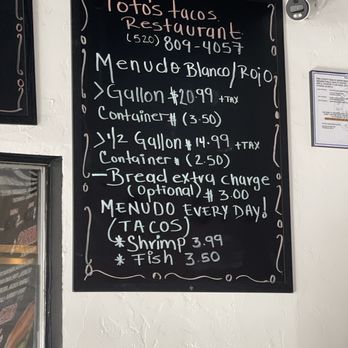 Toto's tacos
Restaurant
(520) 809-4057
Menudo Blanco/Rojo
>Gallon $20.99 +TAX
Container $ (3.50)
>1/2 Gallon $14.99 +TAX
Container $ (2.50)
—Bread extra charge
(Optional) $ 3.00
MENUDO EVERY DAY!
(TACOS)
* Shrimp 3.99
* Fish 3.50